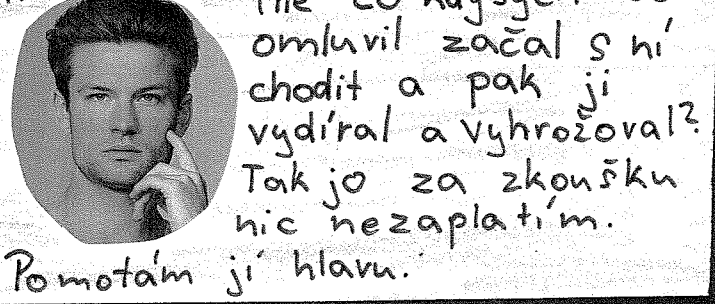 co kdybych se
omluvil začal s ní
chodit a pak ji
vydíral a vyhrožoval?
Tak jo za zkoušku
nic nezaplatím.
Pomotám jí hlavu.